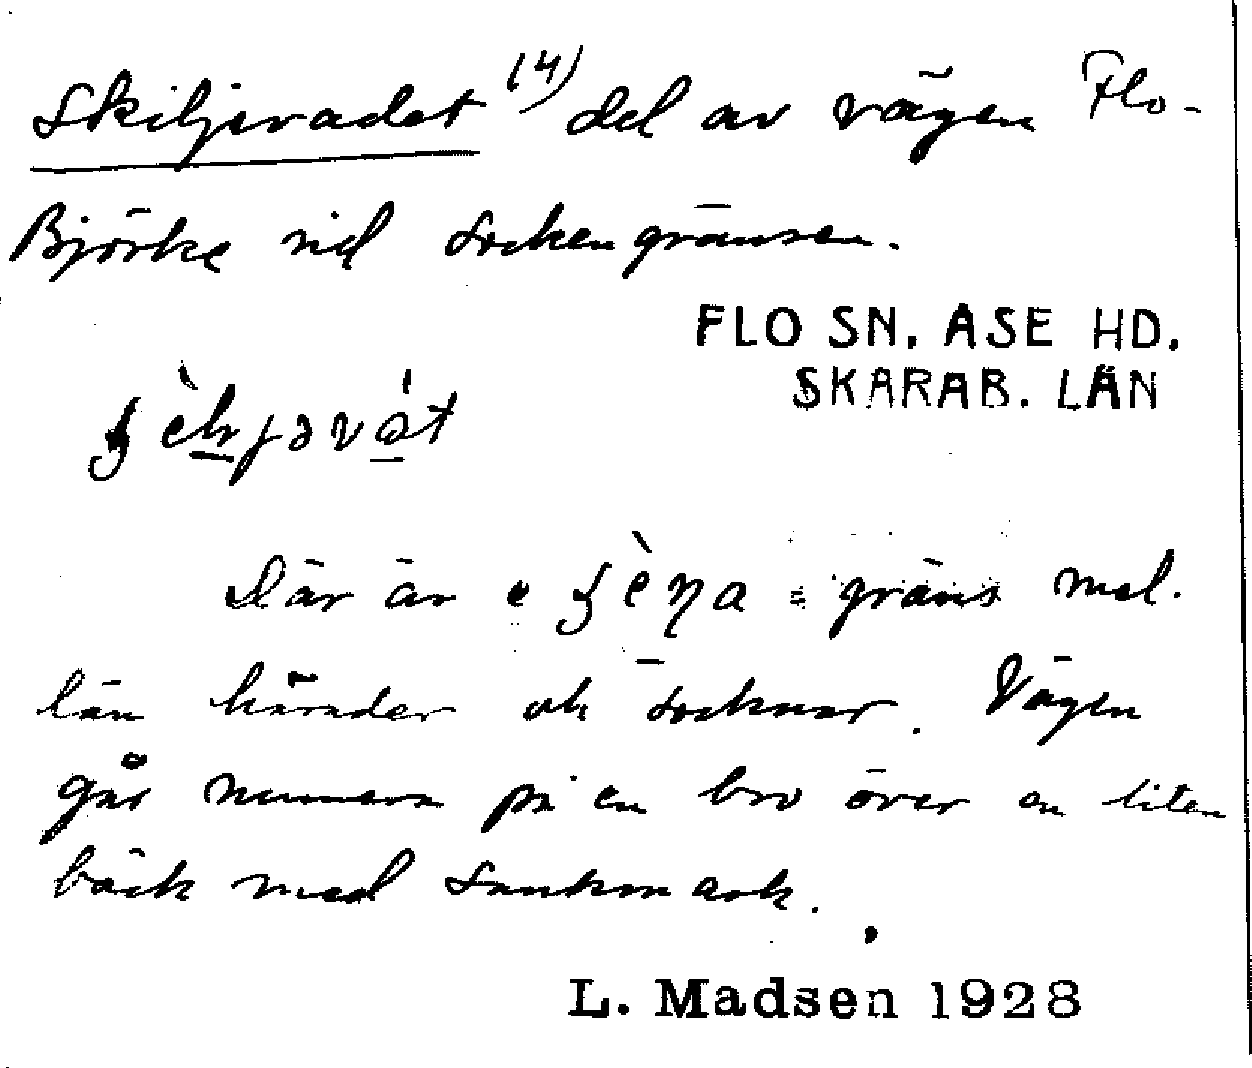 Skiljevadet (4) del av vägen Flo-
Björke vid sockengränsen.
FLO SN. ASE HD.
SKARAB. LÄN
Där är e = gräns mel.
län härader och socknar. Vägen
går numera på en bro över en liten
bäck med sankmark.
L. Madsen 1928